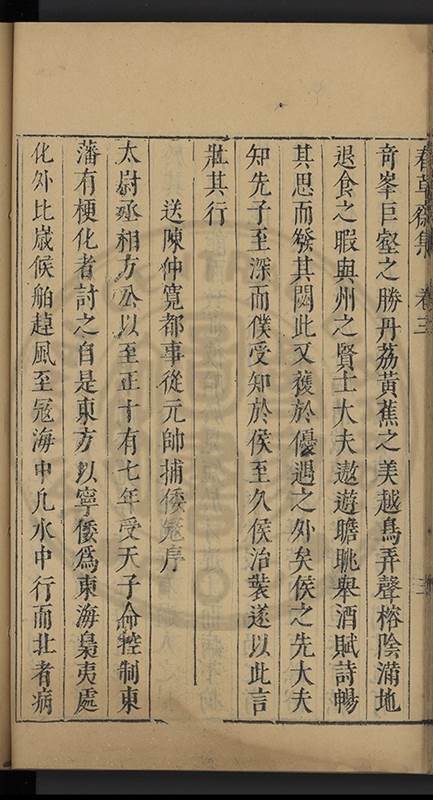 春草齋集　卷三　三
奇峯巨壑之勝丹荔黃蕉之美越鳥弄聲榕陰滿地
退食之暇與州之賢士大夫遨遊瞻眺舉酒賦詩暢
其思而發其閎此又獲於優遇之外矣侯之先大夫
知先子至深而僕受知於侯至久侯治裝遂以此言
壯其行
送陳仲寬都事從元帥捕倭寇序
太尉丞相方公以至正十有七年受天子命控制東
藩有梗化者討之自是東方以寧倭爲東海梟夷處
化外比歲候舶趠風至寇海中凡水中行而北者病